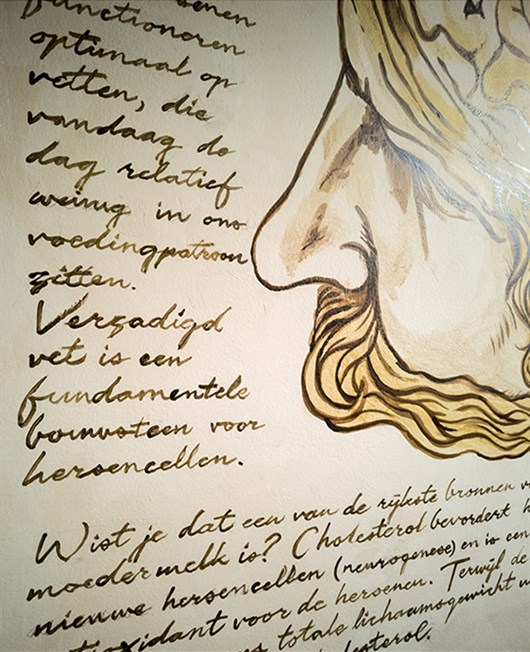 functioneren
optimaal op
vetten, die
vandaag de
dag relatief
weinig in ons
voedingpatroon
zitten.
Verzadigd
vet is een
fundamentele
bouwsteen voor
hersencellen.
Wist je dat een van de rijkste bronnen
moedermelk is? Cholesterol bevordert
nieuwe hersencellen (neurogenese) en is een
voor de hersenen. Terwijl de
totale lichaamsgewicht